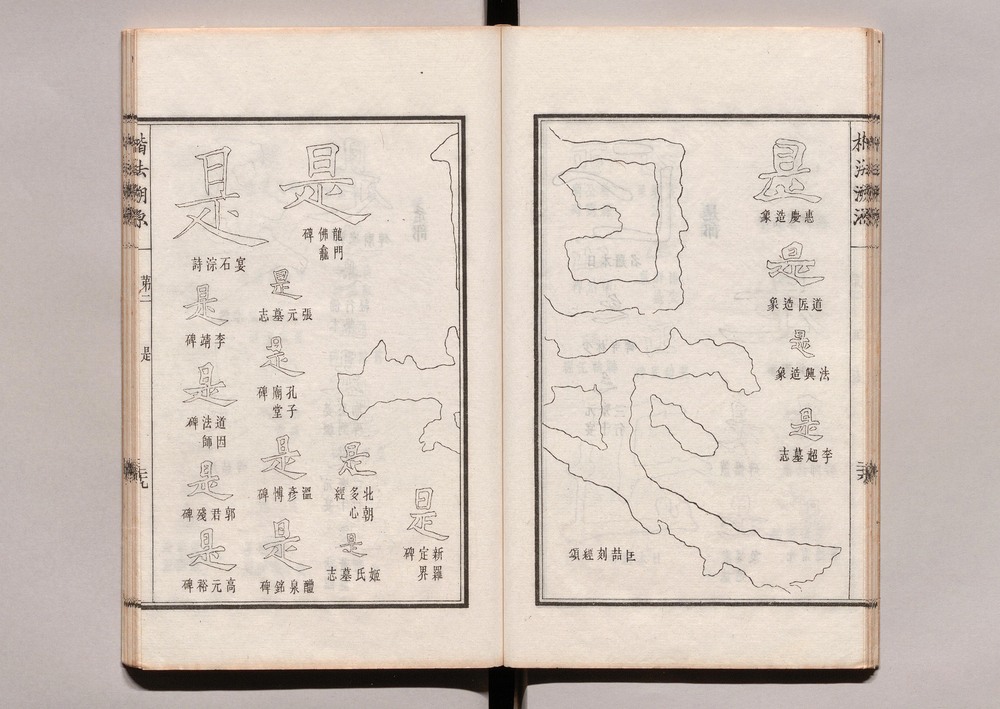 楷法溯源
是
惠慶造象
是
道匠造象
是
法興造象
是
李超墓志
是
匡喆刻經頌
是
新羅定界碑
是
北朝多心經
是
姬氏墓志
是
龍門佛龕碑
是
張元墓志
是
孔子廟堂碑
是
溫彥博碑
是
醴泉銘碑
是
宴石淙詩
是
李靖碑
是
道因法師碑
是
郭君殘碑
是
高元裕碑
楷法溯源
是